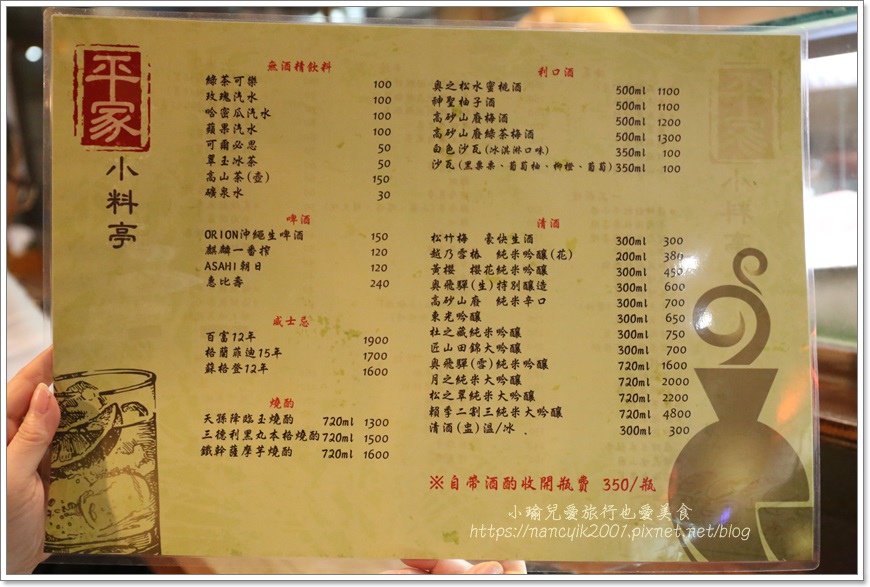 平家
小料亭
無酒精飲料
綠茶可樂 100
玫瑰汽水 100
哈密瓜汽水 100
蘋果汽水 100
可爾必思 50
翠玉冰茶 50
高山茶(壺) 150
礦泉水 30
啤酒
ORION沖繩生啤酒 150
麒麟一番搾 120
ASAHI朝日 120
惠比壽 240
威士忌
百富12年 1900
格蘭菲迪15年 1700
蘇格登12年 1600
燒酌
天孫降臨玉燒酌 720ml 1300
三德利黑丸本格燒酌 720ml 1500
鐵幹薩摩芋燒酌 720ml 1600
利口酒
奧之松水蜜桃酒 500ml 1100
神聖柚子酒 500ml 1100
高砂山廢梅酒 500ml 1200
高砂山廢綠茶梅酒 500ml 1300
白色沙瓦(冰淇淋口味) 350ml 100
沙瓦(黑棗棗、葡萄柚、柳橙、葡萄) 350ml 100
清酒
松竹梅 豪快生酒 300ml 300
越乃雪椿 純米吟釀(花) 200ml 380
黃櫻 櫻花純米吟釀 300ml 450
奧飛驒(生)特別釀造 300ml 600
高砂山廢 純米辛口 300ml 700
東光吟釀 300ml 650
杜之藏純米吟釀 300ml 750
匠山田錦大吟釀 300ml 700
奧飛驒(雪)純米吟釀 720ml 1600
月之純米大吟釀 720ml 2000
松之翠純米大吟釀 720ml 2200
賴季二割三純米大吟釀 720ml 4800
清酒(盅)溫/冰 300ml 300
※自帶酒酌收開瓶費 350/瓶
小瑜兒愛旅行也愛美食
https://nancyik2001.pixnet.net/blog